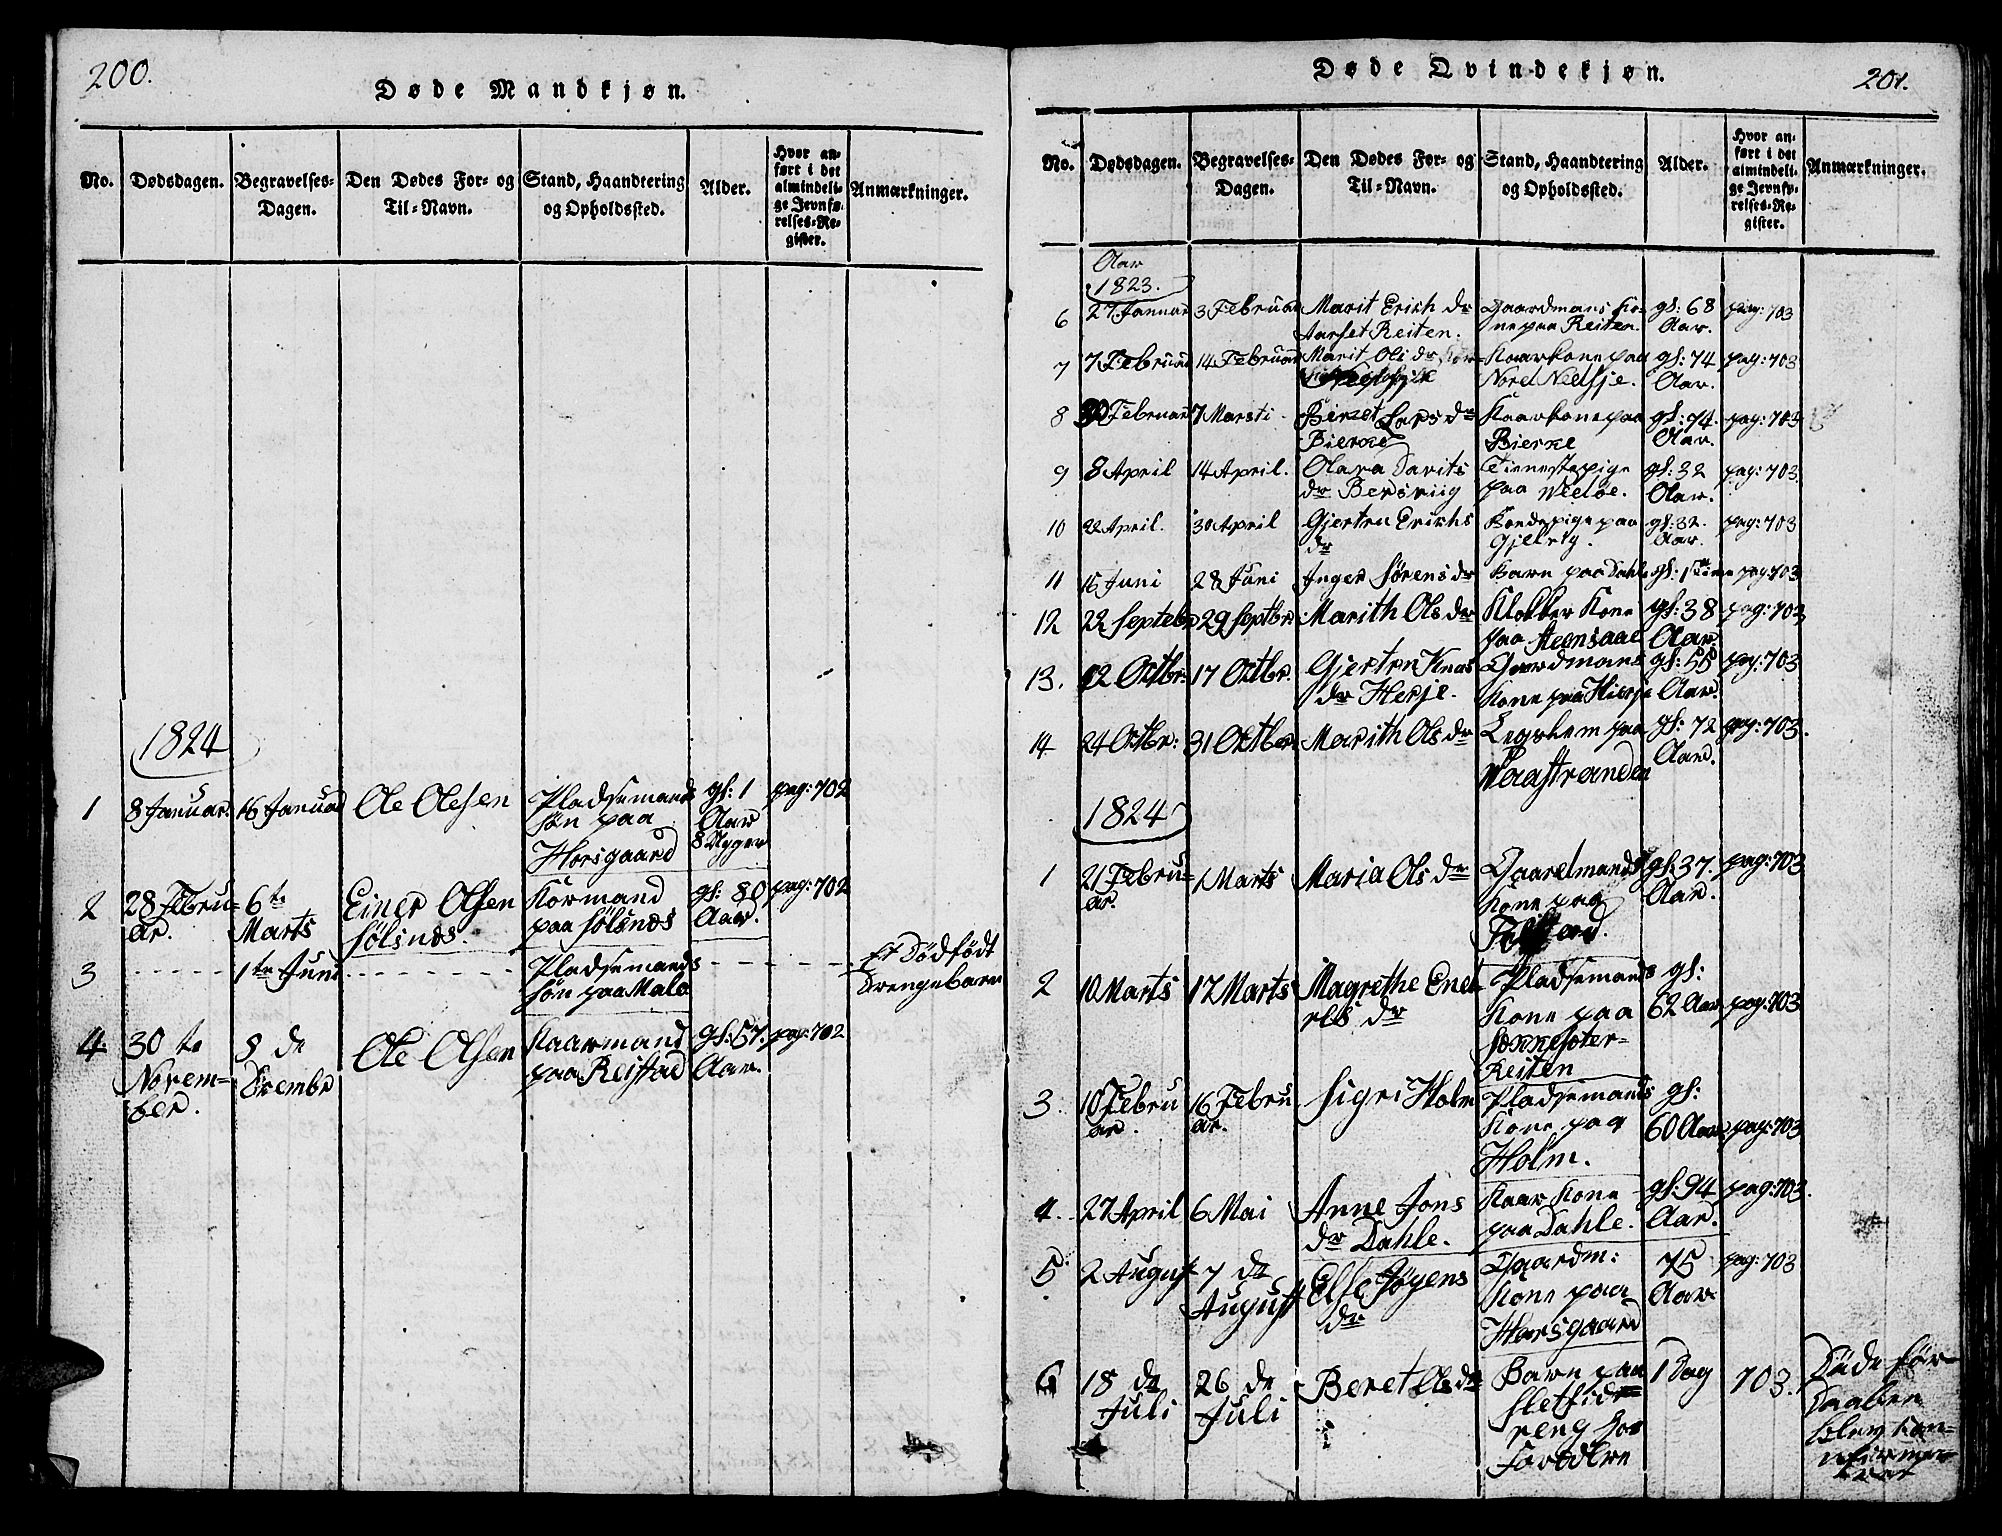 200.
Døde Mandkjøn.
No. Dødsdagen. Begravelses-Dagen. Den Dødes For- og Til-Navn. Stand, Haandtering og Opholdssted. Alder. Hvor anført i det almindelige Jevnførelses-Register. Anmærkninger.
1824
1 8 Januar. 16 Januar Ole Olesen Pladsemands gl: 1 pag: 702
Søn paa Aar
Horsgaard 8 Uger
2 28 Febru= 6te Einer Olsen Kormand gl: 80 pag: 702
ar. Marts Sølsnæs. paa Sølsnæs Aar.
3 1te Juni Pladsemands Et Dödfödt
Søn paa Malo Drengebarn
4 30te 8 de Ole Olsen Kaarmand gl: 57. pag: 702
Novem= Decembr paa Reistad Aar.
ber.
201.
Døde Qvindekjøn.
No. Dødsdagen. Begravelses-Dagen. Den Dødes For- og Til-Navn. Stand, Haandtering og Opholdssted. Alder. Hvor anført i det almindelige Jevnførelses-Register. Anmærkninger.
Aar
1823.
6 27 Januar 3 Februar Marit Erich dr Gaardmans Ko= gl: 68 pag: 703
Aarset Reiten. ne paa Reiten. Aar.
7 7 Februar 14 Februar Marit Ols dr Kaarkone paa gl: 74 pag: 703
Nord Aar.
8 Februar 7 Marsti Beret Lars dr Kaarkone paa gl: 74. pag: 703
Bierke Bierke Aar.
9 8 April 14 April. Davits Tienestepige gl: 32 pag: 703
dr paa Aar.
10 22 April. 30 April Gjertru Erichs paa gl: 32. pag: 703
dr Aar.
11 15 Juni 28 Juni Inger Sørens dr Barn paa Dahle gl: 1 pag: 703
12 22 Septebr 29 Septbr Marith Ols dr Klokker Kone gl: 38 pag: 703
paa Aar.
13. 12 Octbr: 17 Octbr. Gjertru Knus Gaardmans gl: 55 pag: 703
dr Herje. Kone paa Hierje Aar.
14 24 Octbr: 31 Oktber Marith Ols dr Legslem paa gl: 72 pag: 703.
Vaastranden Aar.
1824
1 21 Febru= 1 Marts Maria Ols dr Gaardmands gl: 37. pag: 703
ar. Kone paa Aar.
2 10 Marts 17 Marts Magrethe Pladsemands gl:
dr Kone paa 62 Aar pag: 703
Reiten
3 10 Febru 16 Febru Sigri Holm Pladsemands gl:
ar. ar. Kone paa 60 Aar pag: 703
Holm.
4. 27 April 6 Mai Anne Jons Kaar Kone gl: 94 pag: 703.
dr Dahle. paa Dahle. Aar.
5. 2 August 7 de Else Jörgens Gaardm: 75 pag: 703
August dr Kone paa Aar
Horsgaard
6 18 de 26 de Beret Ols dr Barn paa 1 Dag 703. Døde för
Juli Juli Daaben
blev